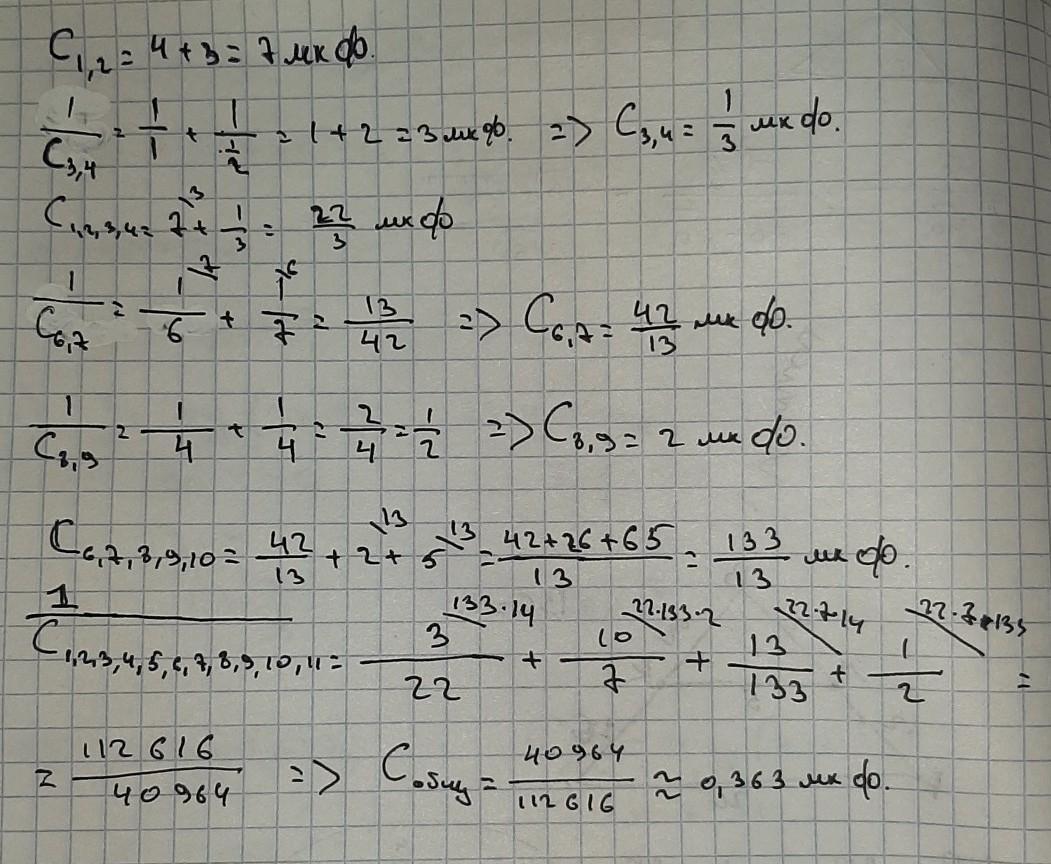 C₁,₂ = 4 + 3 = 7 мкФ.
1/C₃,₄ = 1/1 + 1/(1/2) = 1 + 2 = 3 мкФ. => C₃,₄ = 1/3 мкФ.
C₁,₂,₃,₄ = 7\3 + 1/3 = 22/3 мкФ
1/C₆,₇ = 1/6\7 + 1/7\6 = 13/42 => C₆,₇ = 42/13 мкФ.
1/C₈,₉ = 1/4 + 1/4 = 2/4 = 1/2 => C₈,₉ = 2 мкФ.
C₆,₇,₈,₉,₁₀ = 42/13 + 2\13 + 5\13 = (42+26+65)/13 = 133/13 мкФ.
1/C₁,₂,₃,₄,₅,₆,₇,₈,₉,₁₀,₁₁ = 3/22\133·14 + 10/7\22·133·2 + 13/133\22·7·14 + 1/2\22·7·133 =
= 112616/40964 => Cобщ = 40964/112616 ≈ 0,363 мкФ.